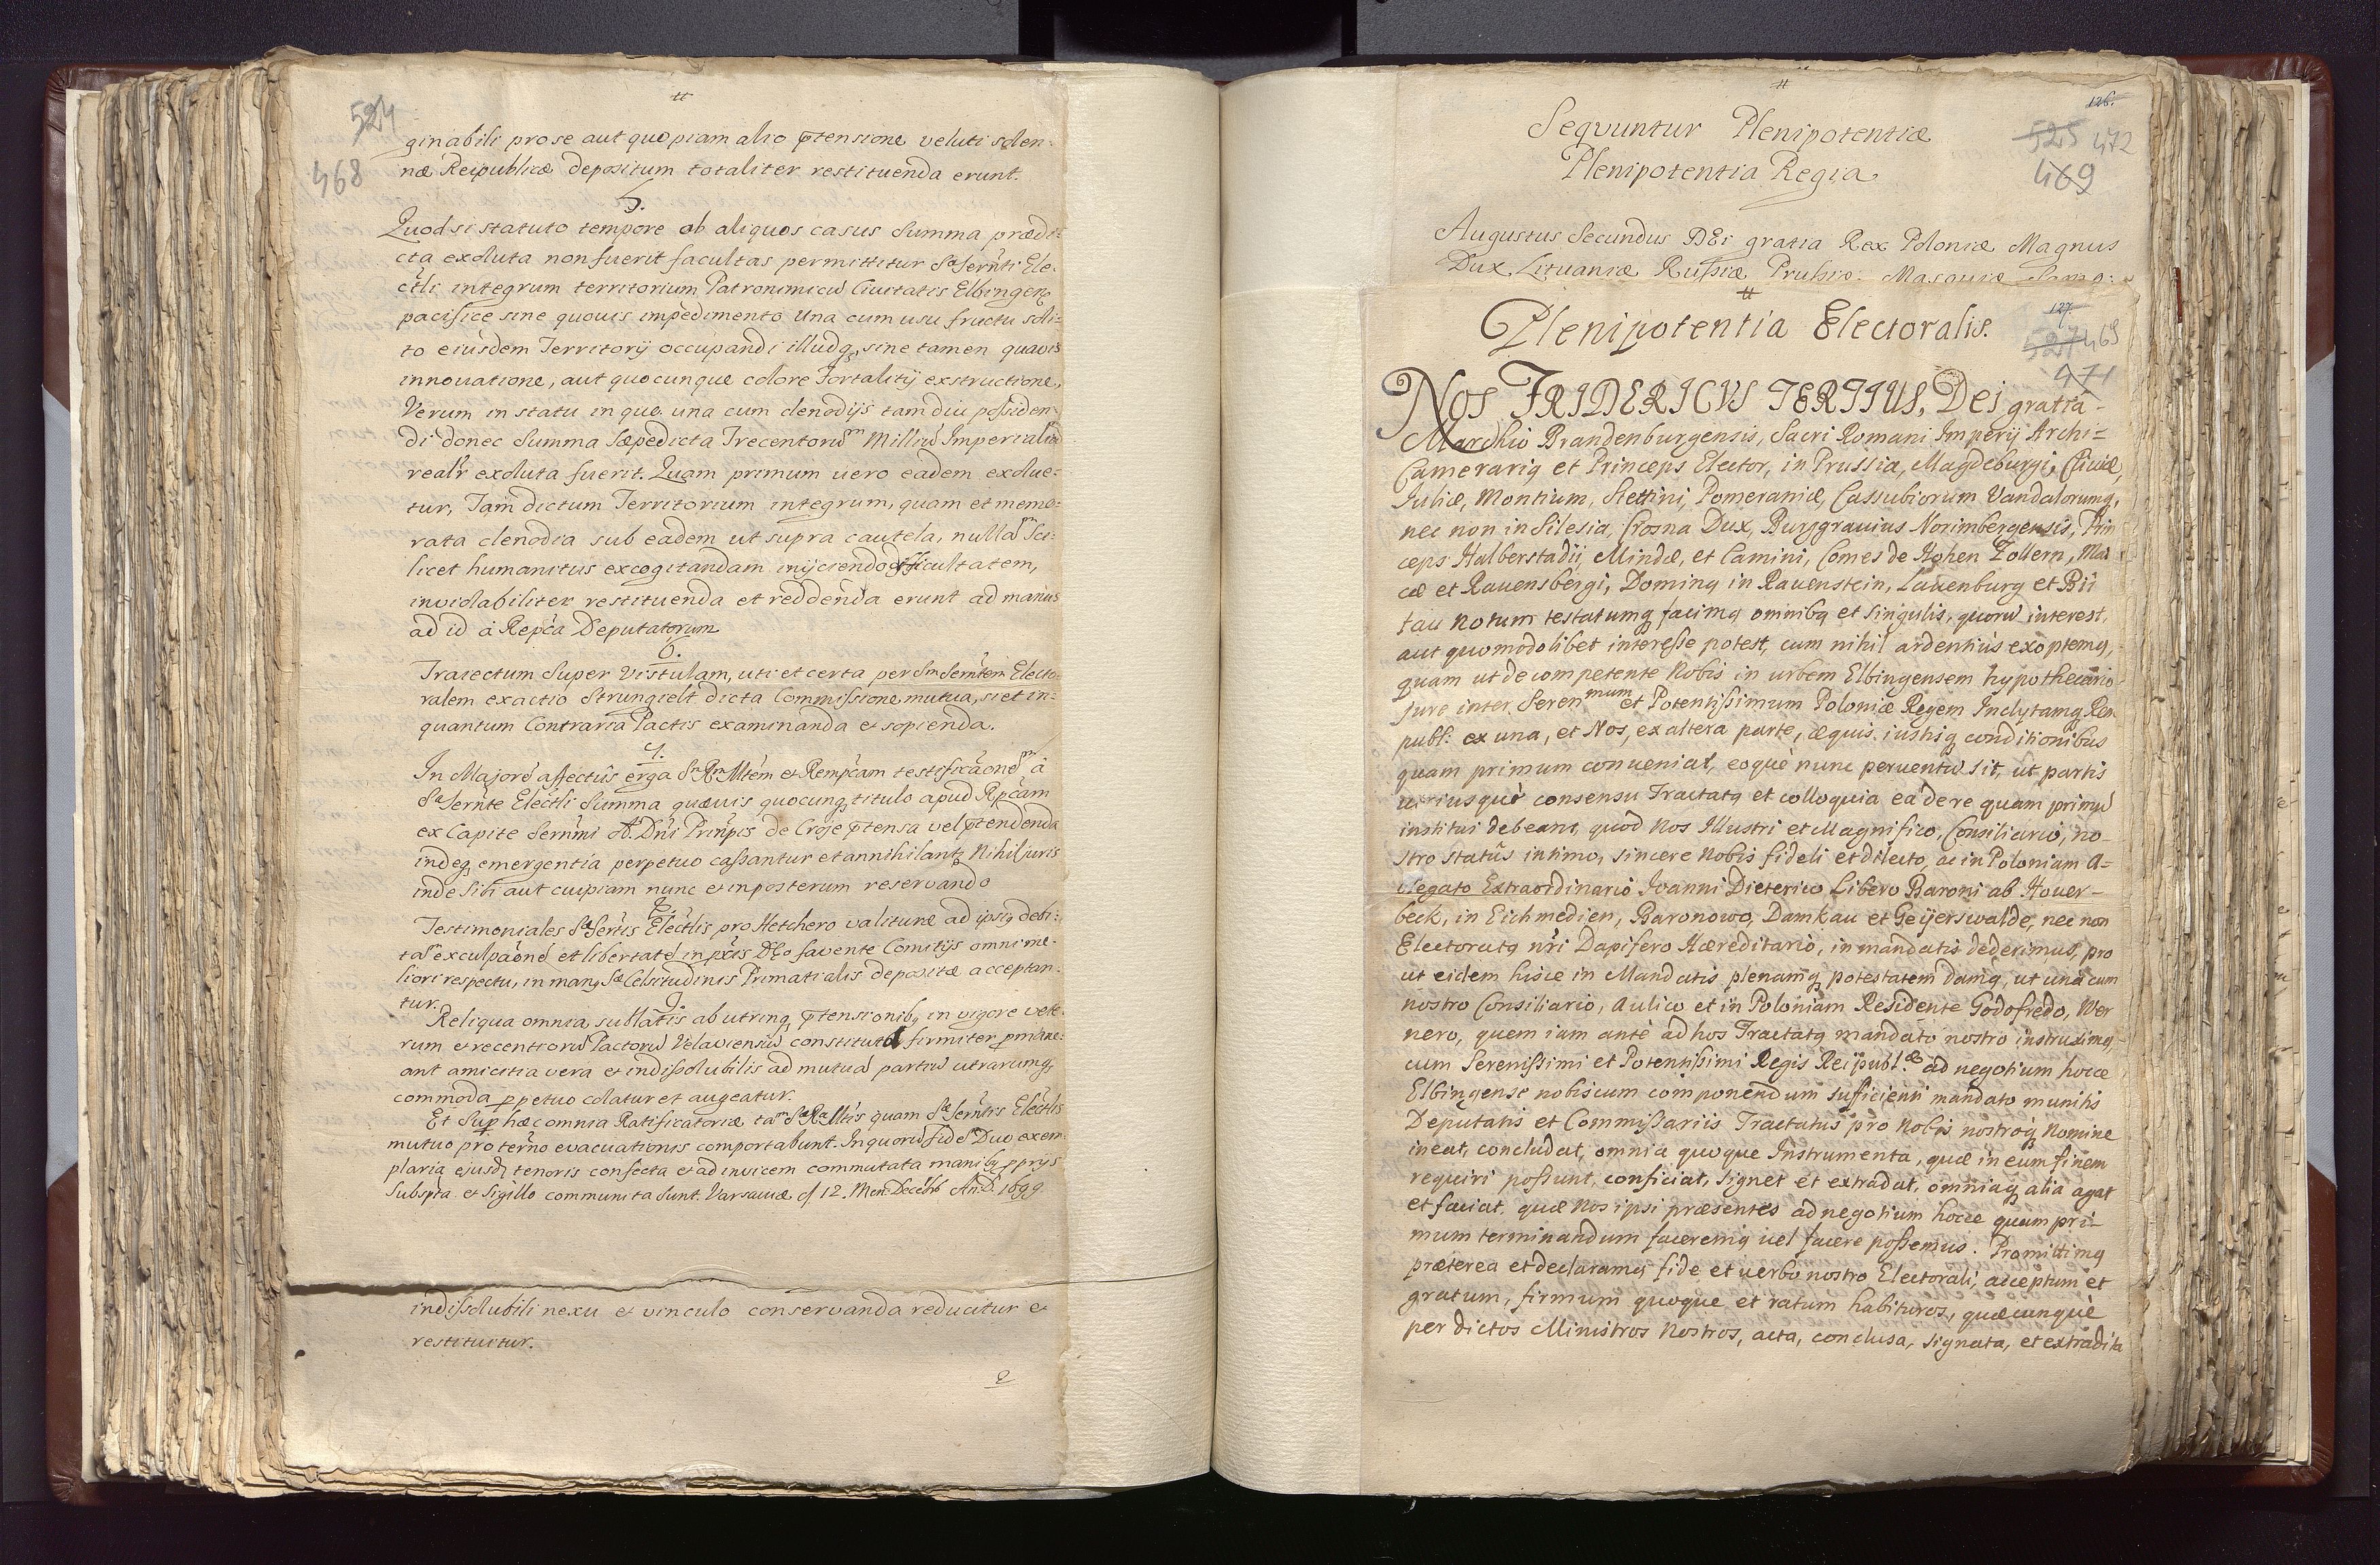 #
524
468
ginabili pro se aut quopiam alio prtensione veluti solen:
næ Reipublicæ depositum totaliter restituenda erunt.
5.
Quod si statuto tempore ob aliquos casus Summa prædi:
cta exoluta non fuerit facultas permittitur Sae Sernti Ele:
ctli integrum territorium Patronimicũ Civitatis Elbingens
pacifice sine quovis impedimento Una cum usu fructu soli:
to eiusdem Territorij occupandi illudq, sine tamen quavis
innovatione, aut quocunque colore Fortalitij exstructione,
Verum in statu in quo una cum clenodijs tamdiu possiden:
di donec Summa Sæpedicta Trecentorũ Milliũ Imperialiũ
realr exoluta fuerit. Quam primum vero eadem exolue:
tur, Tam dictum Territorium integrum, quam et memo:
rata clenodia sub eadem ut supra cautela, nullam Sci:
licet humanitus excogitandam inijciendo difficultatem,
inviolabiliter restituenda et reddenda erunt ad manus
ad id à Repca Deputatorum
6.
Traiectum Super Vistulam, uti et certa per Sm Serntem Electo
ralem exactio Strungielt dicta Commissione, mutua, si et in:
quantum Contraria Pactis examinanda et sopienda.
7.
In Majorẽ affectûs erga Sm Rm Mtem et Rempcam testificãonẽm à
Sae Sernte Electli Summa quævis quocunq titulo apud Rpcam
ex Capite Sernmi Dni Prinpis de Croje prtensa vel prtendenda
indeq emergentia perpetuo cassantur et annihilantr Nihil juris
inde Sibi aut cuipiam nunc et inposterum reservando
8.
Testimoniales Sae Sertis Electlis pro Hetchero valituræ ad ipsiq debi:
tam exculpãonẽ et libertatẽ in pxis Deo favente Comitijs omni me:
liori respectu, in manq Sae Celsitudinis Primatialis depositæ acceptan:
tur.
9.
Reliqua omnia, sublatis ab utrinq prtensionibq in vigore vete:
rum et recentiorũ Pactorũ Velaviensiũ constituta firmiter pmane:
ant amicitia vera et indissolubilis ad mutuã partiũ utrarumq
commoda perpetuo colatur et augeatur.
Et Sup hæc omnia Ratificatoriæ tam Sae Rae Mtis quam Sae Serntis Electlis
mutuo pro terno evacuationis comportabunt. In quorũ fidem Duo exem
plaria ejusdẽ tenoris confecta et ad invicem commutata manibq pprijs
Subspta et Sigillo communita sunt. Varsaviæ d 12. Men Decemb An. D. 1699
indissolubili nexu et vinculo conservanda reducitur et
restituitur.
#
126.
525 472
469
Sequuntur Plenipotentiæ
Plenipotentia Regia
Augustus Secundus DEi gratia Rex Poloniæ Magnus
Dux Lituaniæ Russiæ Prussiæ Masoviæ Samog:
#
127.
527 469
471
Plenipotentia Electoralis.
Nos FRIDERICVS TERTIUS, Dei gratia
Marchio Brandenburgensis, Sacri Romani Imperij Archi=
Camerariq et Princeps Elector, in Prussia, Magdeburgi, Cliviæ,
Juliæ, Montium, Stettini, Pomeraniæ, Cassubiorum Vandalorumq,
nec non in Silesia, Crosna Dux, Burggravius Norimbergensis, Prin
ceps Halberstadij Mindæ, et Camini, Comes de Hohen Zollern, Mar
cæ et Ravensbergi, Dominq in Ravenstein, Lauenburg et Bü
tau Notum testatumq facimq omnibq et singulis, quorũ interest,
aut quomodolibet interesse potest, cum nihil ardentiùs exoptemq,
quam ut de competente Nobis in urbem Elbingensem hypothecario
jure inter Serenmum et Potentissimum Poloniæ Regem Inclytamq Rem
publ: ex una, et Nos, ex altera parte, æquis iustisq conditionibus
quam primum conveniat, eoquè nunc perventũ sit, ut partis
utriusquè consensu Tractatq et colloquia eâ de re quam primũ
institui debeant, quod Nos Illustri et Magnifico, Consiliario, no
stro statûs intimo, sincere Nobis fideli et dilecto, ac in Poloniam A=
blegato Extraordinario Joanni Dieterico Libero Baroni ab Hover=
beck, in Eichmedien, Baronowo, Damkau et Geijerswalde, nec non
Electoratq nri Dapifero Hæreditario, in mandatis dederimus, pro
ut eidem hisce in Mandatis plenamq potestatem damq, ut unà cum
nostro Consiliario, Aulico et in Poloniam Residente Godofredo, Wer
nero, quem iam antè ad hos Tractatq mandato nostro instruximq,
cum Serenissimi et Potentissimi Regis Reipubl.æ ad negotium hocce
Elbingense nobiscum componendum sufficienti mandato munitis
Deputatis et Commissariis Tractatus pro Nobis nostroq Nomine
ineat, concludat, omnia quoque Instrumenta, quæ in eum finem
requiri possunt, conficiat, signet et extradat, omniaq alia agat
et faciat, quæ Nos ipsi præsentes ad negotium hocce quam pri=
mum terminandum faceremq vel facere possemus. Promittimq
præterea et declaramq fide et verbo nostro Electorali, acceptum et
gratum, firmum quoque et ratum habituros, quæcunquè
per dictos Ministros Nostros, acta, conclusa, signata, et extradita